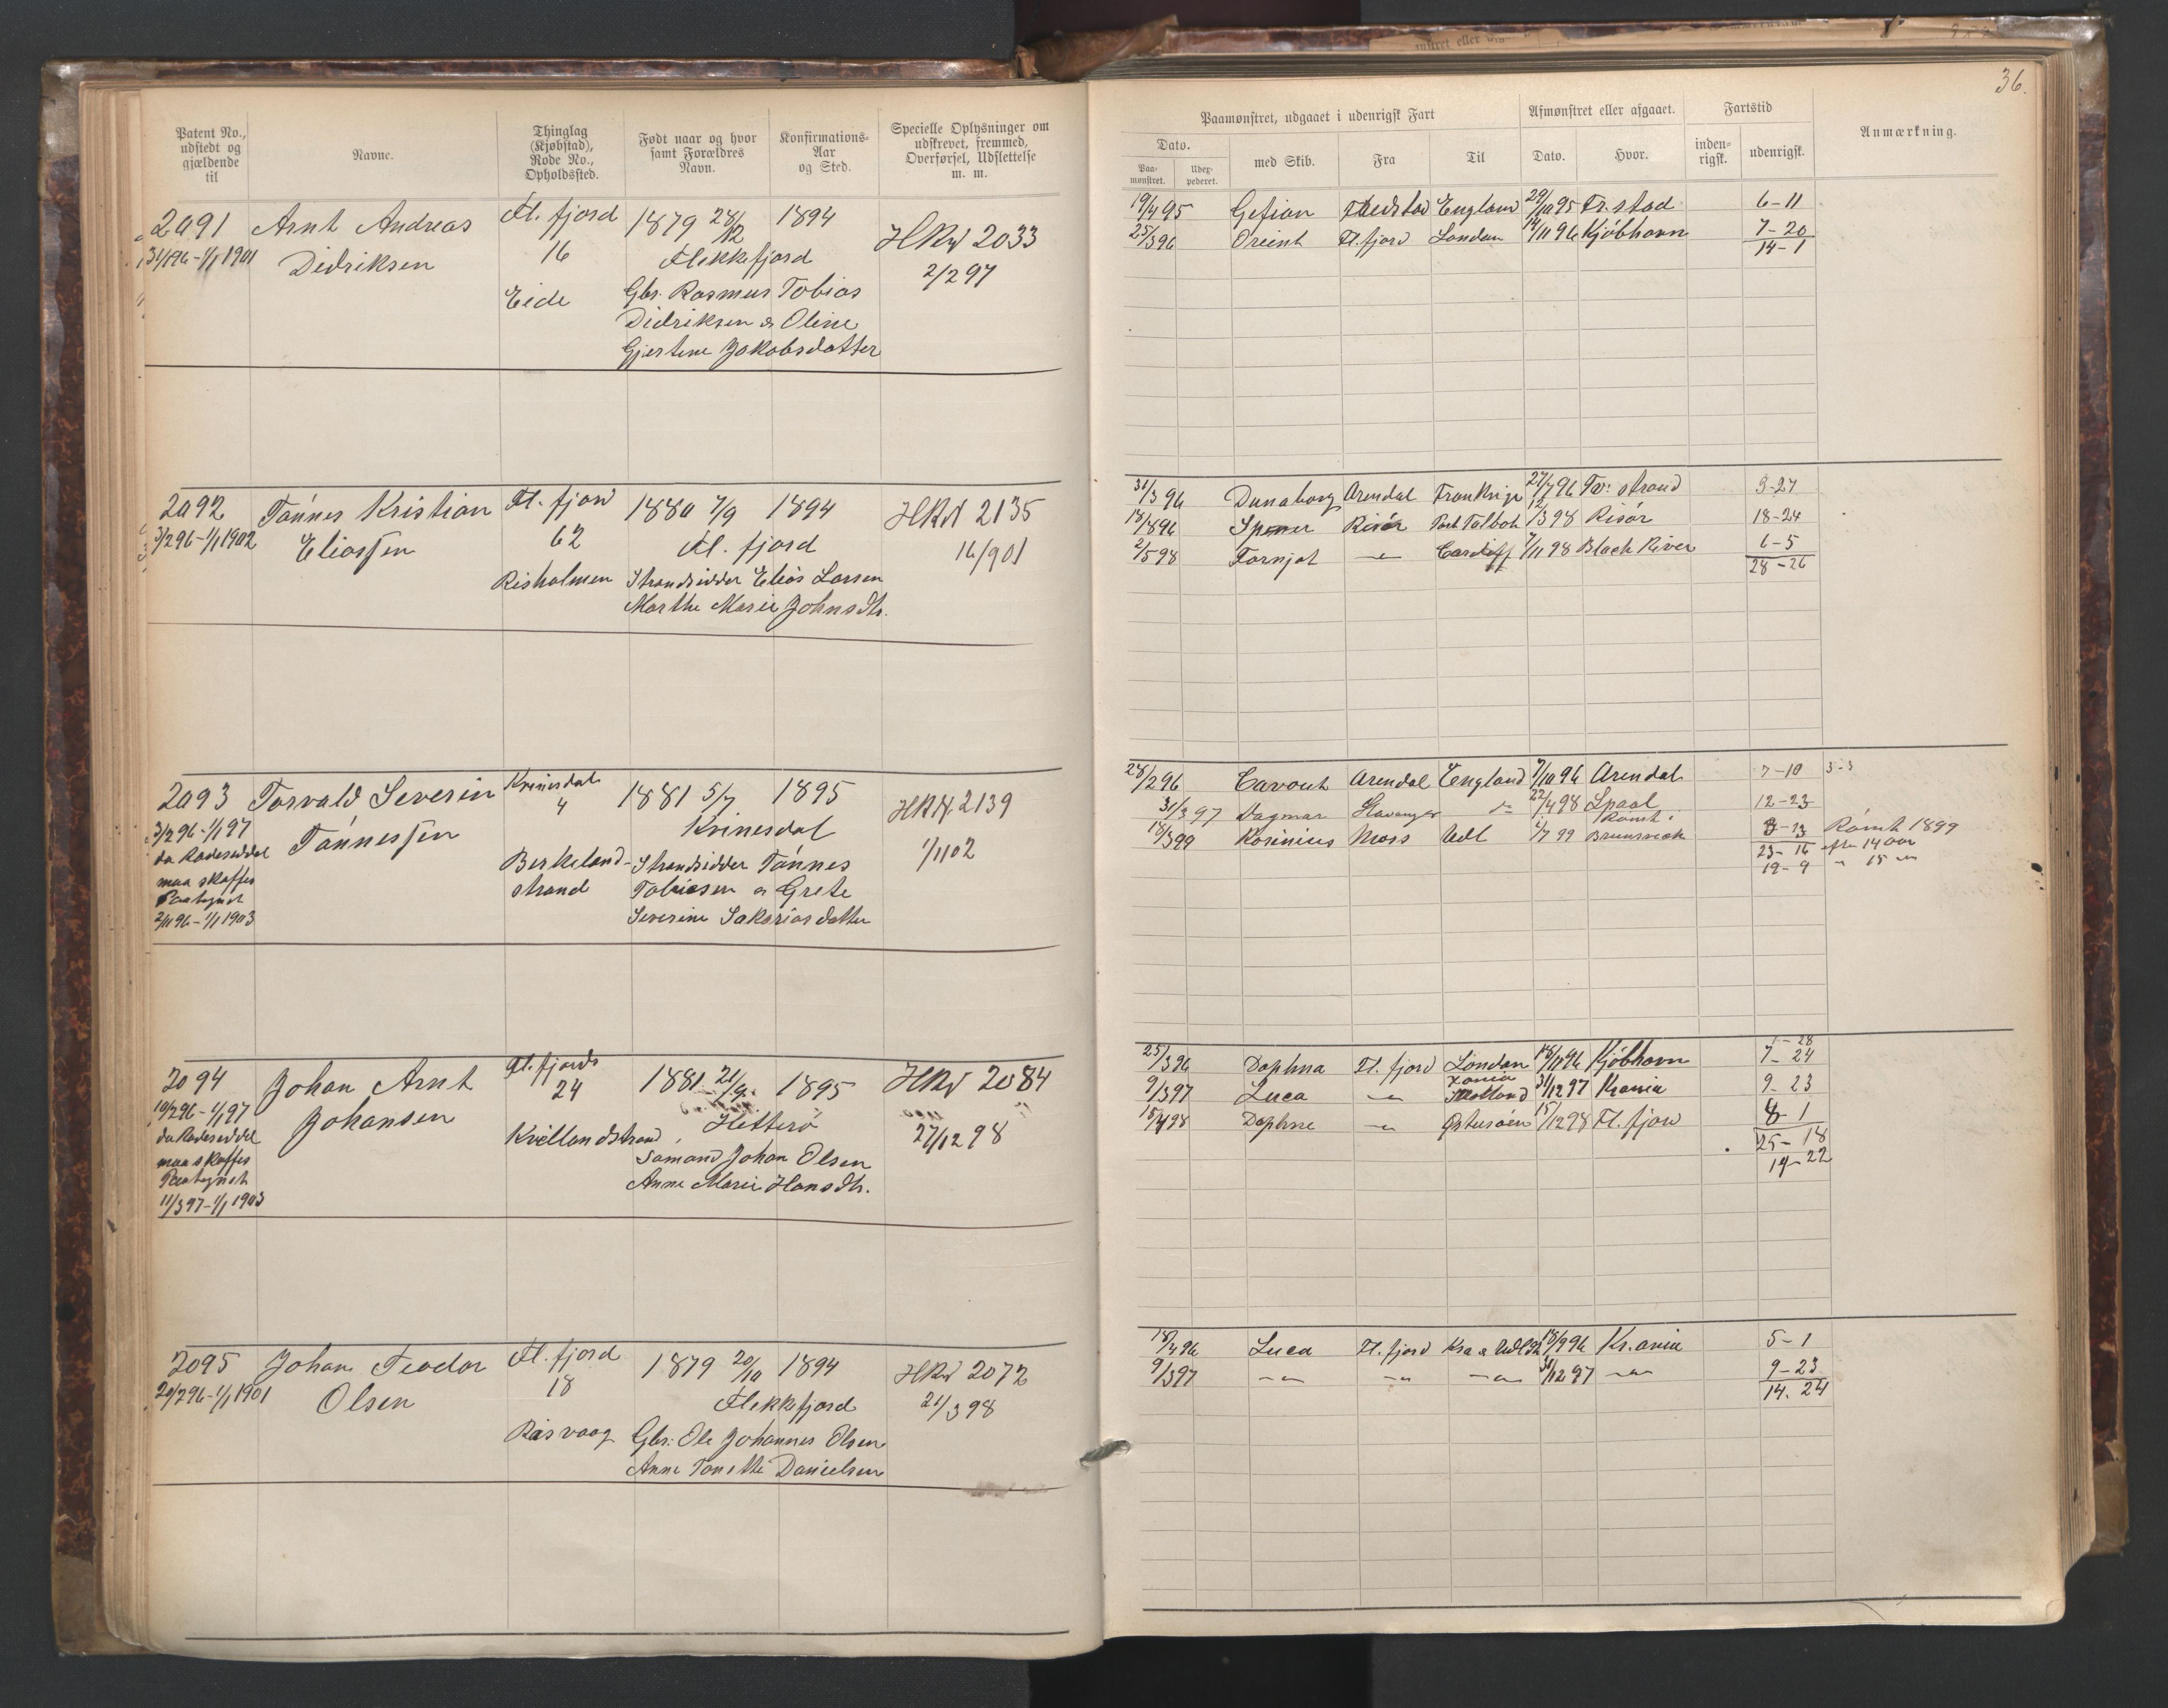 36.
Patent No., udstedt og gjældende til
Navne.
Thinglag (Kjøbstad), Rode No., Opholdssted.
Født naar og hvor samt Forældres Navn.
Konfirmations-Aar og Sted.
Specielle Oplysninger om udskrevet, fremmed, Overførsel, Udslettelse m. m.
Paamønstret, udgaaet i udenrigsk Fart
Afmønstret eller afgaaet.
Fartstid
Anmærkning.
Dato.
med Skib.
Fra
Til
Dato.
Hvor.
inden-rigsk.
udenrigsk.
Paa-mønstret.
Udex-pederet.
2091 Arnt Andreas Fl. fjord 1879 28/12 1894 HRN 2033
Didriksen 16 Flekkefjord 2/2 97
Eide Gbr. Rasmus Tobias
Didriksen & Oline
Gjertine Jakobsdatter
19/4 95 Gefion Fredstad England 29/10 95 Fr. stad 6-11
25/3 96 Oreint Fl. fjord London 14/11 96 Kjøbhavn 7-20
14-1
2092 Tönnes Kristian Fl. fjord 1880 7/9 1894 HRN 2135
3/2 96-1/1 1902 Eliassen 62 Fl. fjord 16/901
Risholmen Strandsidder Elias Larsen
Marthe Marie Johnsdtr.
31/3 96 Dunaborg Arendal Frankrige 27/7 96 Tv: strand 3-27
18/8 96 Risör Port Talbot 12/3 98 Risör 18-24
2/5 98 Fornjot -"- Cardiff 7/11 98 Black River 6-5
28-26
2093 Torvald Severin Kvinesdal 1881 5/7 1895 HRN 2139
3/2 96-1/1 97 Tönnessen 4 Kvinesdal 1/1102
da Rodeseddel
maa skaffes Berkeland- Strandsidder Tönnes
Paategnet strand Tobiasen & Grete
2/11 96-1/1 1903 Severine Sakariasdatter
28/2 96 Cavout Arendal England 7/10 96 Arendal 7-10 3-3
31/3 97 Dagmar Stavanger 22/4 98 12-23
Römt i
18/3 99 Moss Udl 99 Brunswick 3-13 Römt 1899
23-16 efter 14 aar
19-9 " 15 "
2094 Johan Arnt Fl. fjords 1881 21/9 1895 HRN 2084
10/2 96-1/1 97 Johansen 24 Hitterö 27/12 98
da Rodeseddel
maa skaffes Kvellandstrand Sømand Johan Olsen
Paategnet Anne Marie Hansdtr.
11/3 97-1/1 1903
1-28
25/3 96 Daphna Fl. fjord London 18/11 96 Kjøbhavn 7-24
9/3 97 Luca -"- 31/12 97 Krania 9-23
15/4 98 Daphne -"- Østersöen 15/12 98 Fl. fjord 8-1
25-18
19-22
2095 Johan Teodor Fl. fjord 1879 20/10 1894 HRN 2072
20/2 96-1/1 1901 Olsen 18 Flekkefjord 21/3 98
Rasvaag Gbr: Ole Johannes Olsen
Anne Tonette Danielsen
18/4 96 Luca Fl. fjord Kra & Udl 18/9 96 Kr.ania 5-1
9/3 97 -"- -"- -"- 31/12 97 -"- 9-23
14.24